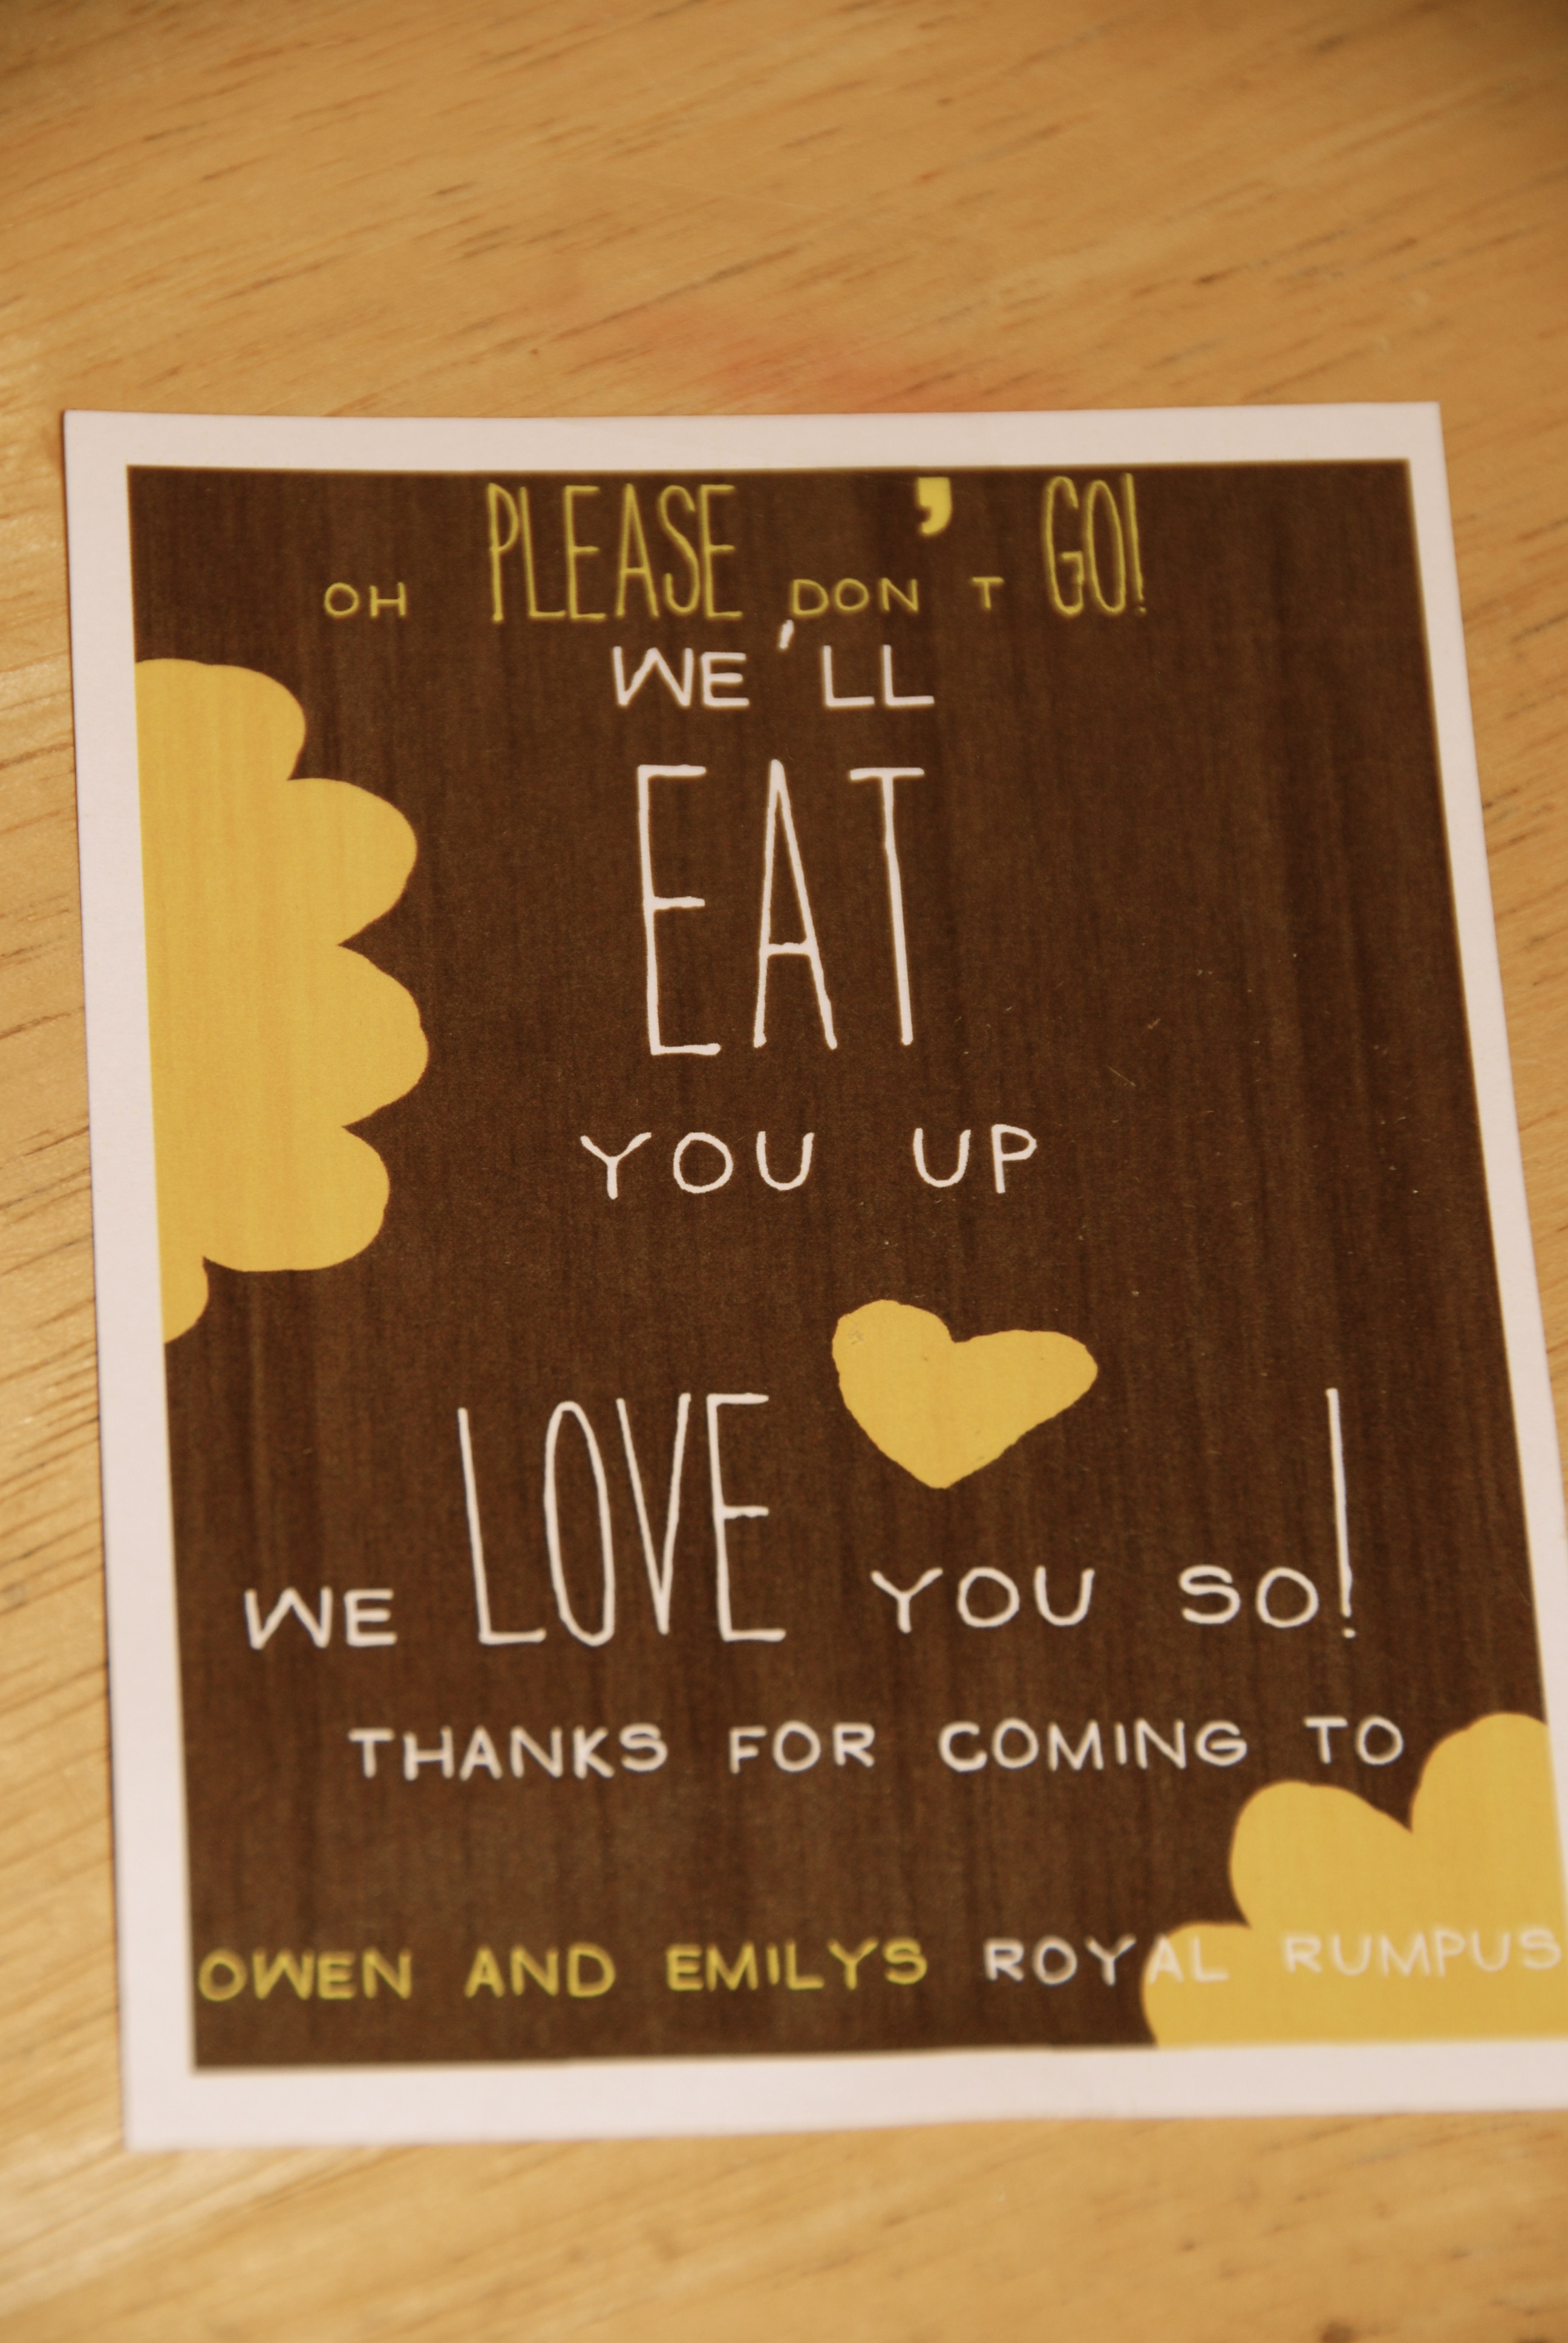 OH PLEASE DON'T GO!
WE'LL
EAT
YOU UP
WE LOVE YOU SO!
THANKS FOR COMING TO
OWEN AND EMILYS ROYAL RUMPUS